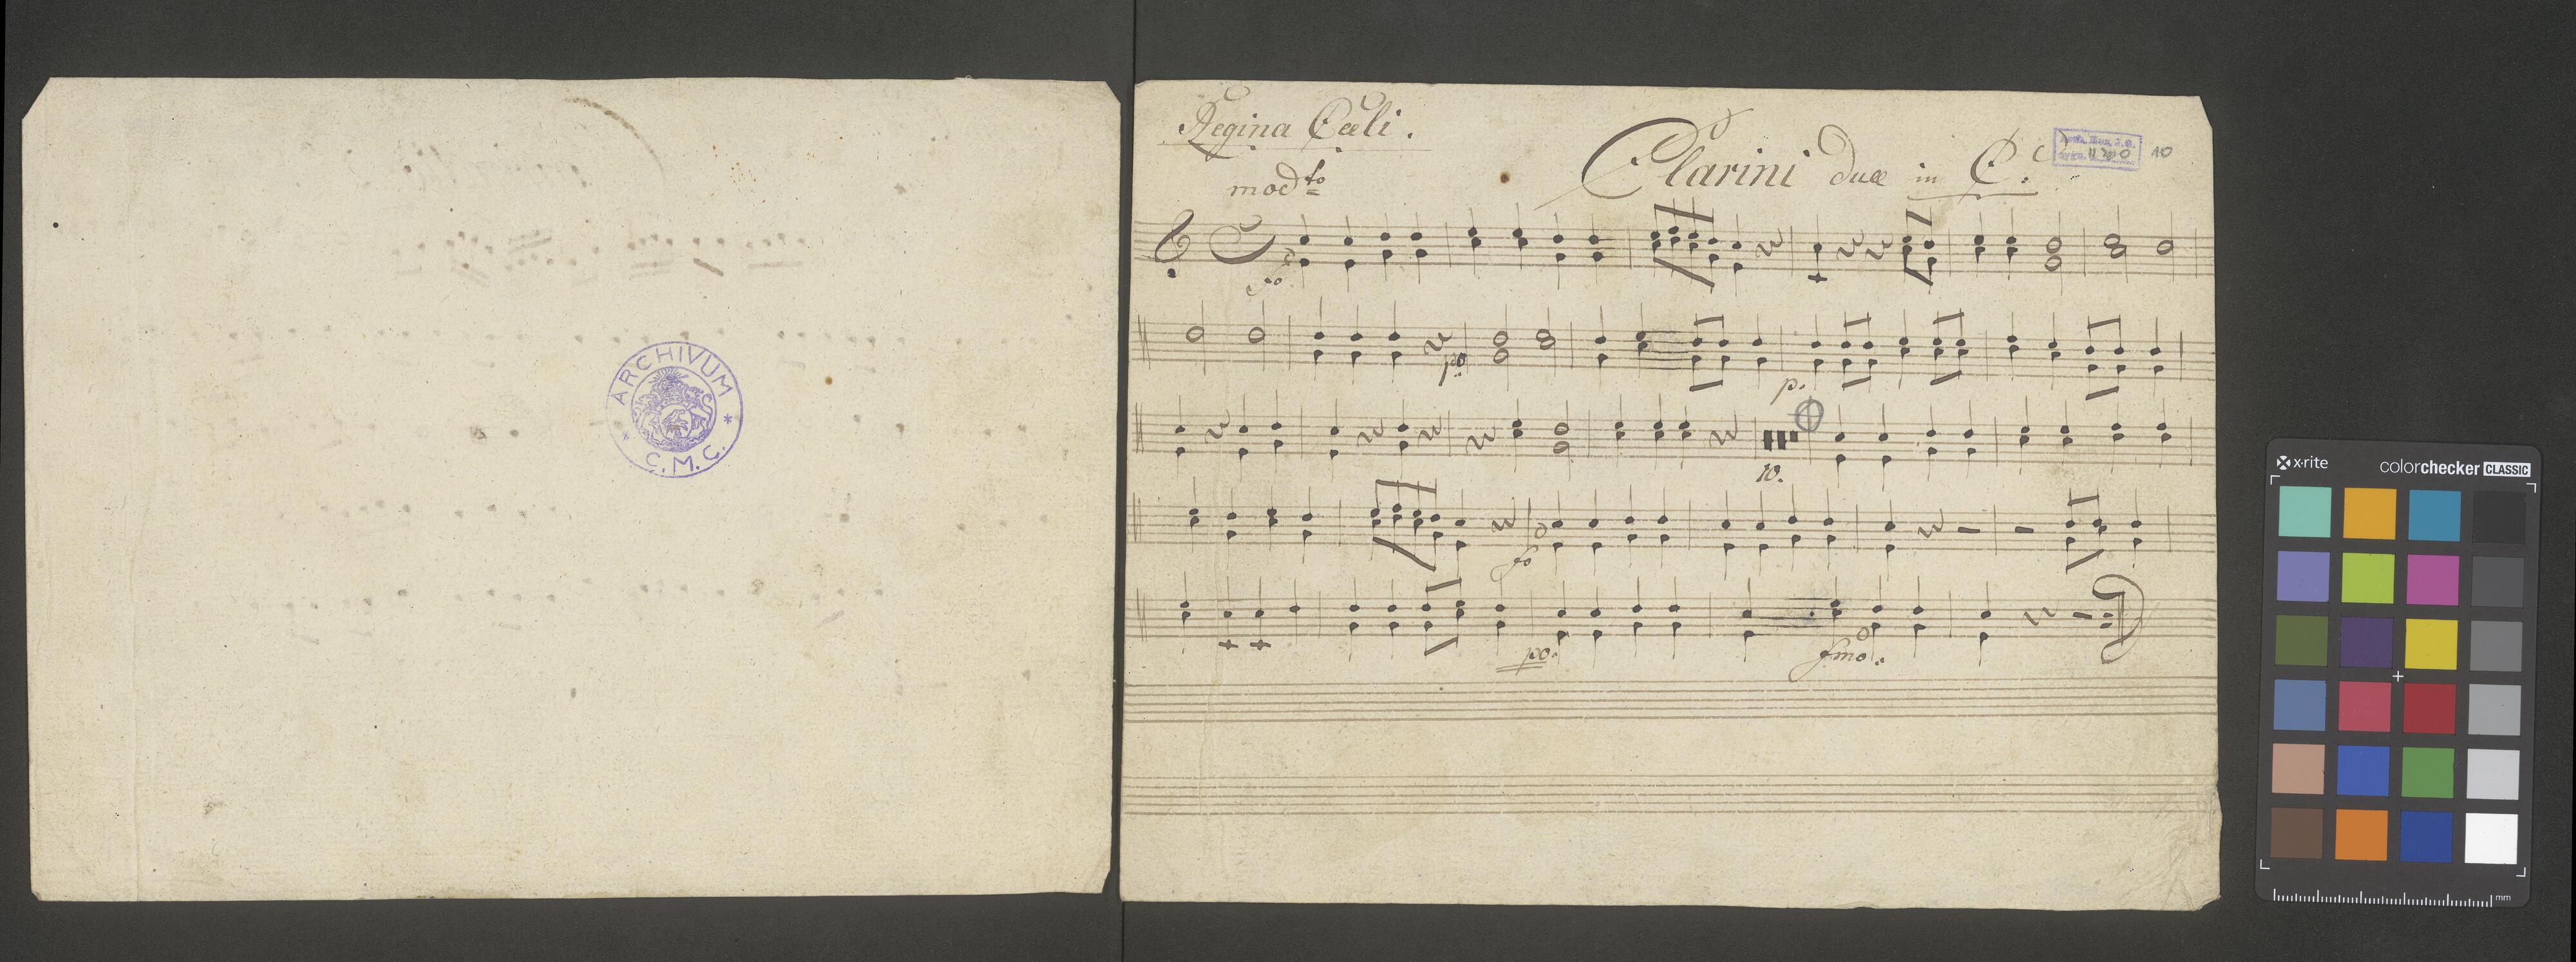 ARCHIVUM
* C.M.C. *
Regina Cæli.
Clarini duæ in C.
10
modto
fo
po
p.
10.
fo
po.
fmo.
x-rite
colorchecker CLASSIC
mm